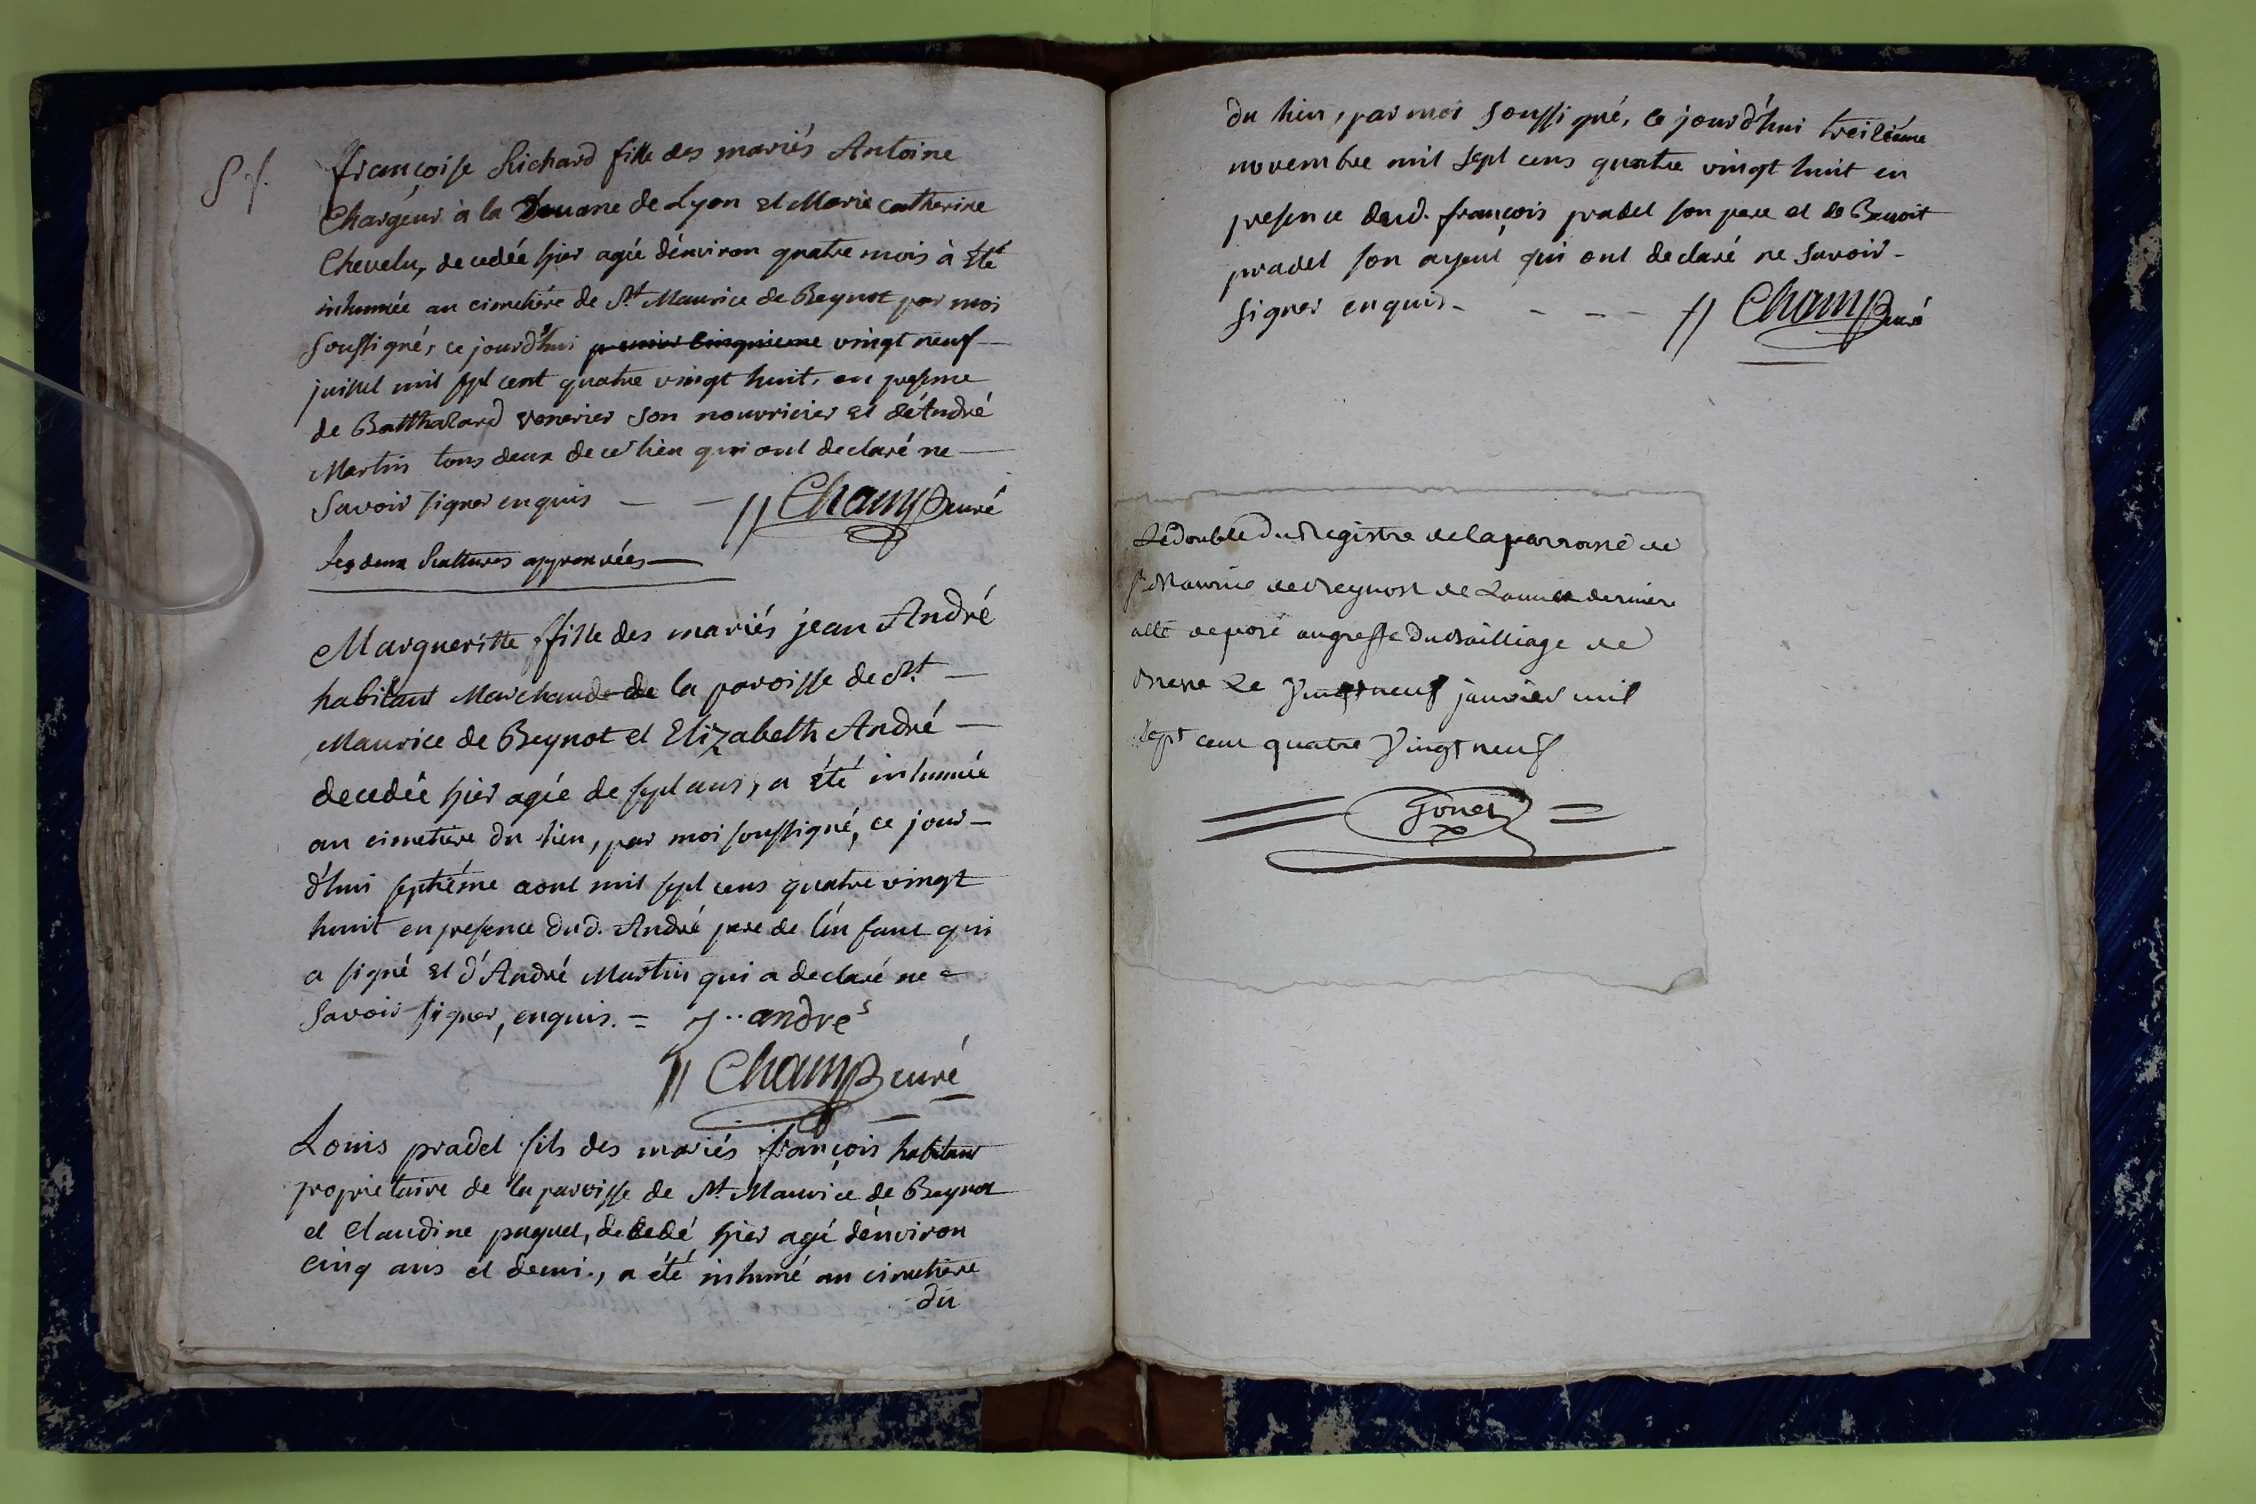 S /.
françoise Richard fille des mariés Antoine
Chargeur à la Douane de Lyon et Marie catherine
Chevelu, decedée hier agée d'environ quatre mois à été
inhumée au cimetière de St Maurice de Beynot par moi
soussigné, ce jourd'hui premier cinquieme vingt neuf
juillet mil sept cent quatre vingt huit, en presence
de Batthazard venerier son nourricier et d'André
Martin tous deux de ce lieu qui ont declaré ne
savoir signer enquis - - // Champ curé
les deux Ratures approuvées
Margueritte fille des mariés jean André
habitant Marchand de la paroisse de St
Maurice de Beynot et Elizabeth André
decedée hier agée de sept ans, a été inhumée
au cimetiere du lieu, par moi soussigné, ce jour-
d'hui septiéme aout mil sept cens quatre vingt
huit en presence dud. André pere de l'enfant qui
a signé et d'André Martin qui a declaré ne =
savoir signer, enquis. = J.. andre
// Champ curé
Louis pradel fils des mariés françois habitant
proprietaire de la paroisse de St Maurice de Beynot
et Claudine puquet, decedé hier agé d'environ
cinq ans et demi., a été inhumé au cimetiere
du
du lieu, par moi soussigné, ce jourd'hui treiziéme
novembre mil sept cens quatre vingt huit en
presence dud. françois pradel son pere et de Benoit
pradel son ayeul qui ont declaré ne savoir -
signer enquis - - - - // Champ curé
Le double du Registre de la parroisse de
St Maurice de Beynost de Lannée derniere
atté deposé augreffe du Bailliage de
Bresse Le vingt neuf janvier mil
sept cent quatre vingt neuf